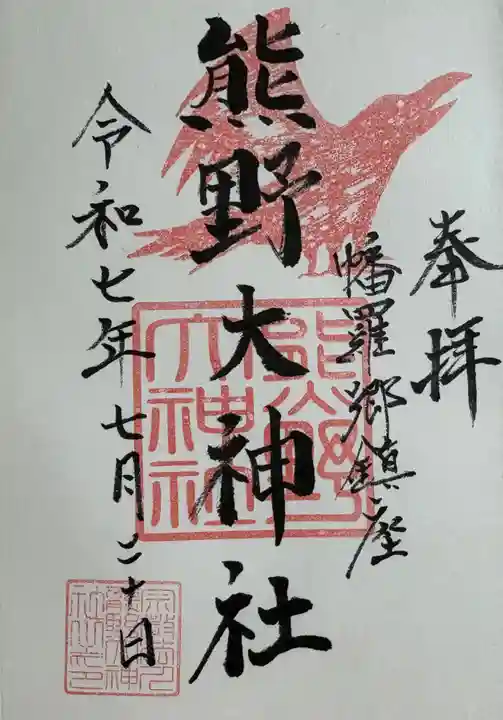 奉拝
幡羅郷鎮座
熊野大神社
熊野大神社
令和七年七月二十日